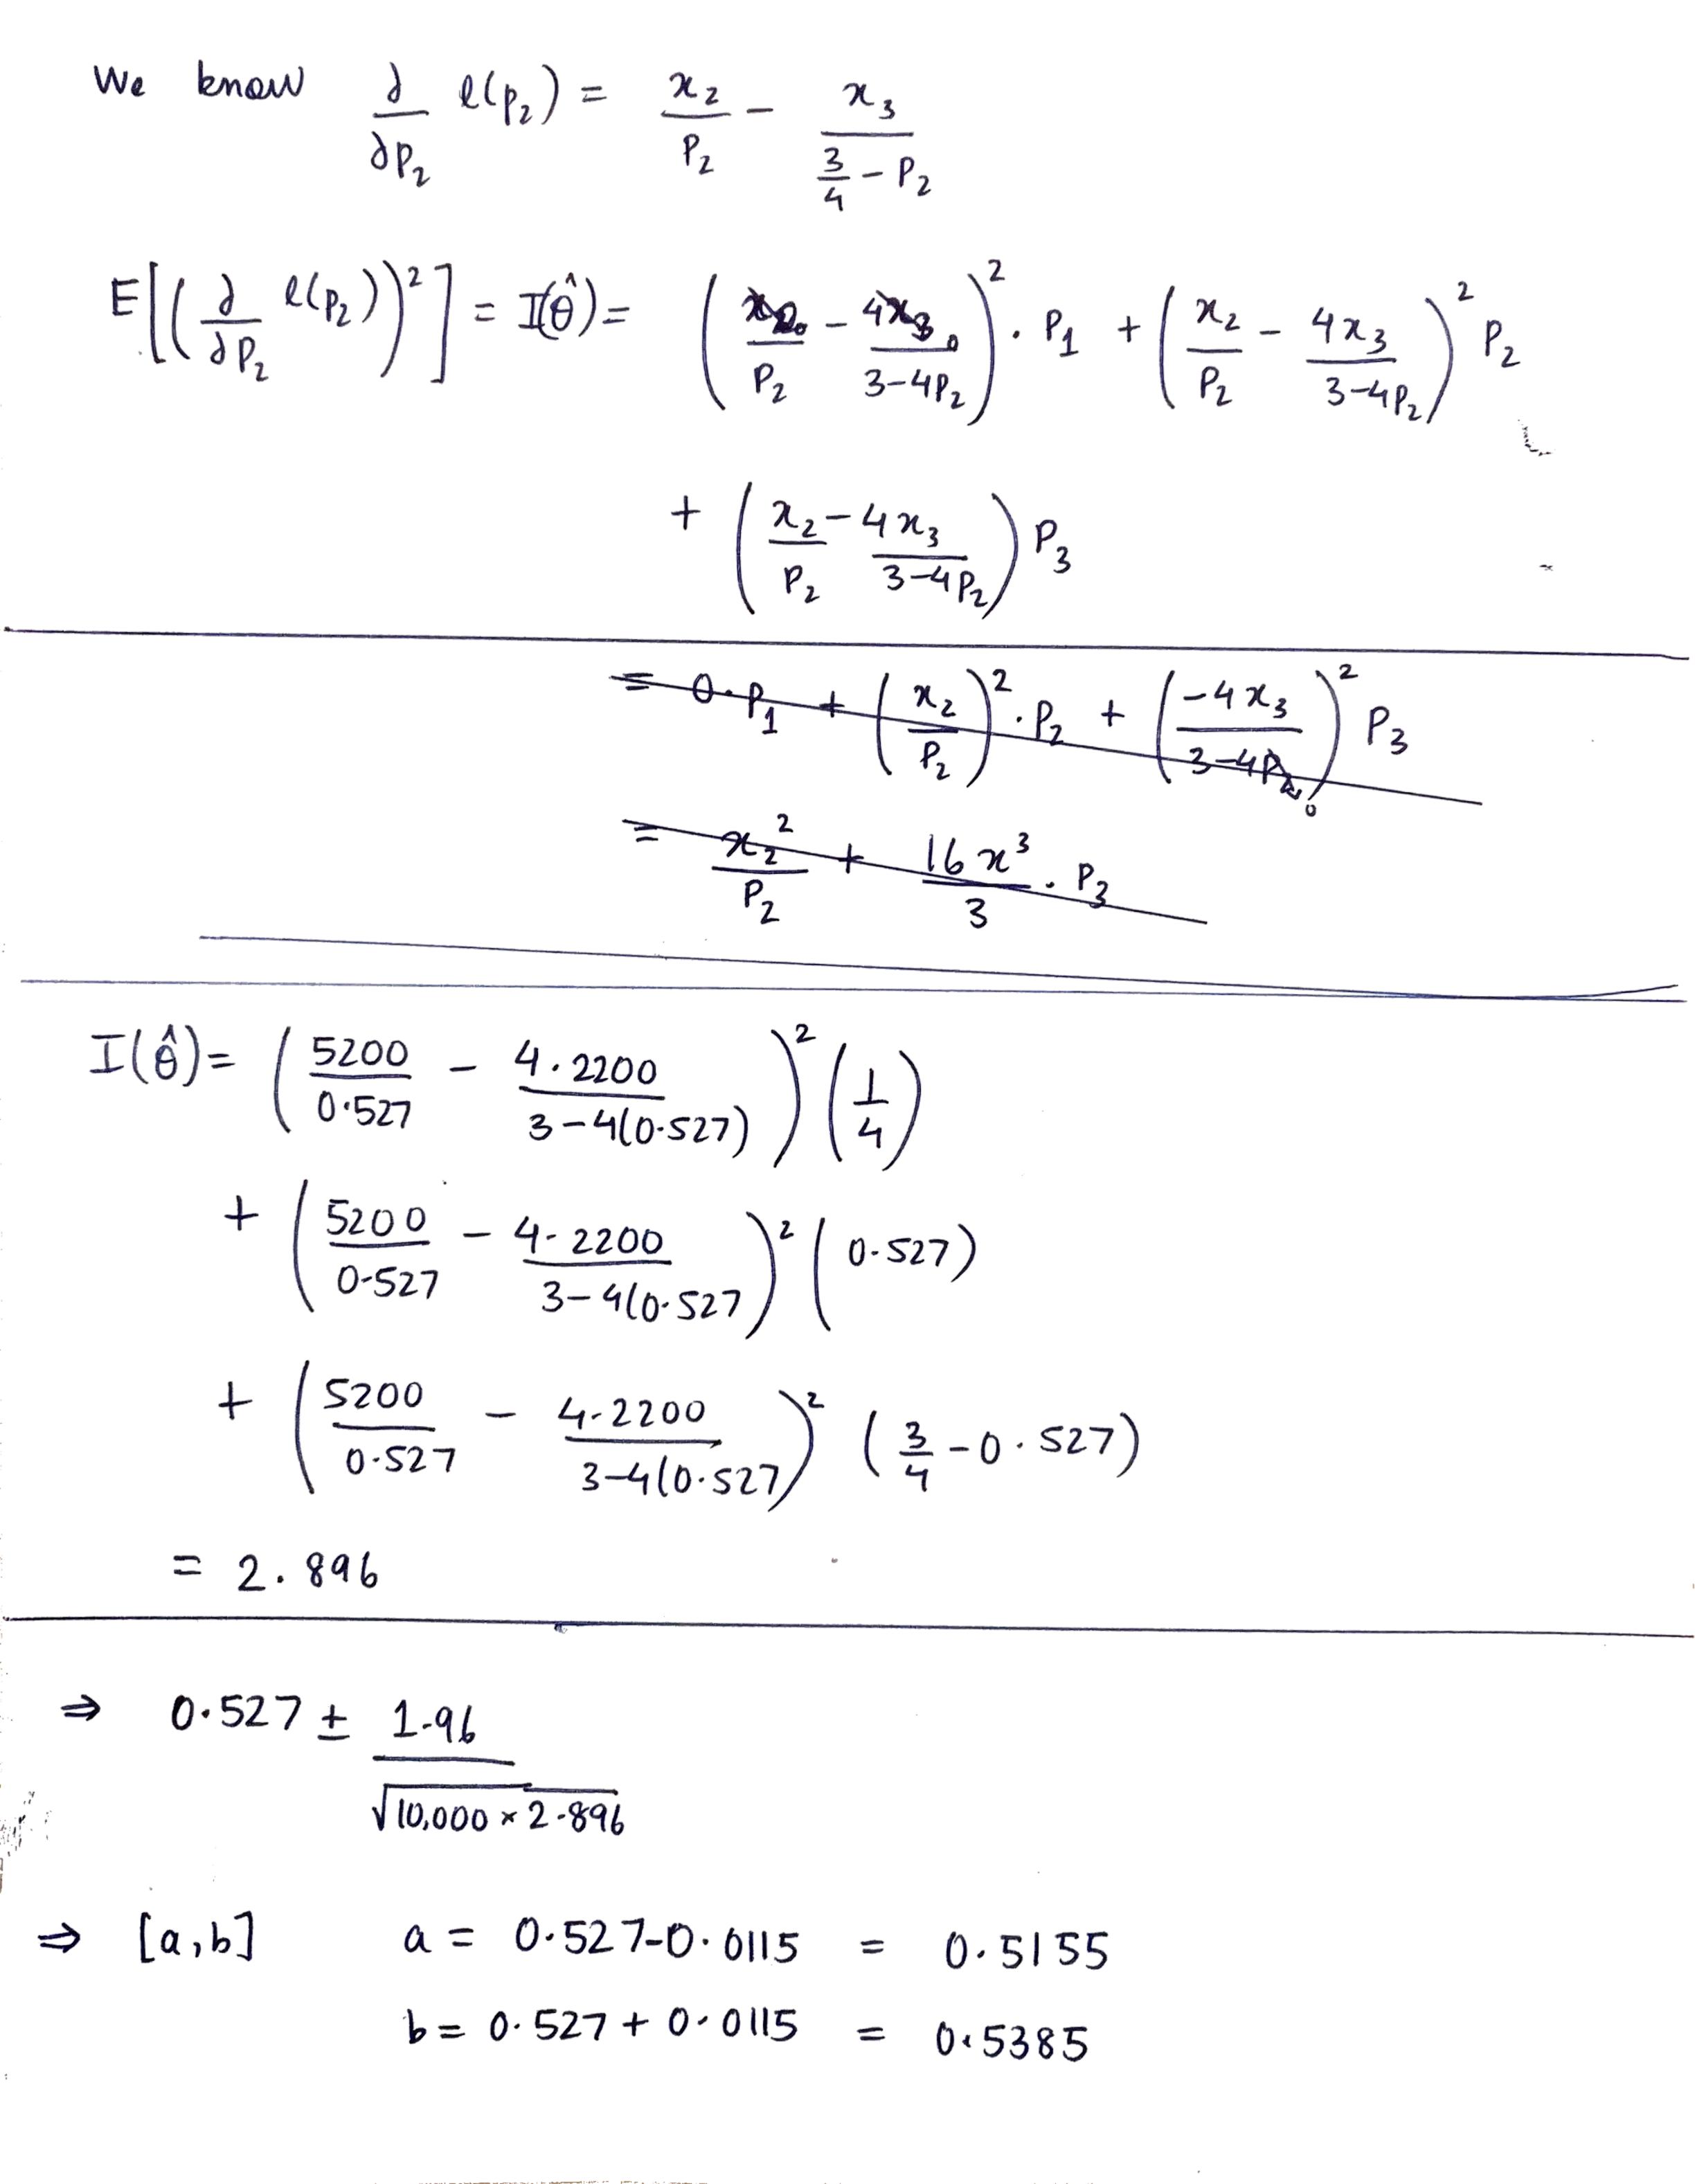 We know ∂/∂p₂ ℓ(p₂) = x₂/p₂ − x₃/(3/4 − p₂)
E[(∂/∂p₂ ℓ(p₂))²] = I(θ̂) = ( /p₂ − /(3−4p₂))² · p₁ + (x₂/p₂ − 4x₃/(3−4p₂))² p₂
+ (x₂/p₂ − 4x₃/(3−4p₂)) p₃
= 0·p₁ + (x₂/p₂)² · p₂ + (−4x₃/(3−4p₂))² p₃
= x₂²/p₂ + 16x³/3 · p₃
I(θ̂) = (5200/0.527 − 4.2200/(3−4(0.527)))² (1/4)
+ (5200/0.527 − 4.2200/(3−4(0.527))² (0.527)
+ (5200/0.527 − 4.2200/(3−4(0.527))² (3/4 − 0.527)
= 2.896
⇒ 0.527 ± 1.96/√(10,000 × 2.896)
⇒ [a,b] a = 0.527−0.0115 = 0.5155
b = 0.527 + 0.0115 = 0.5385